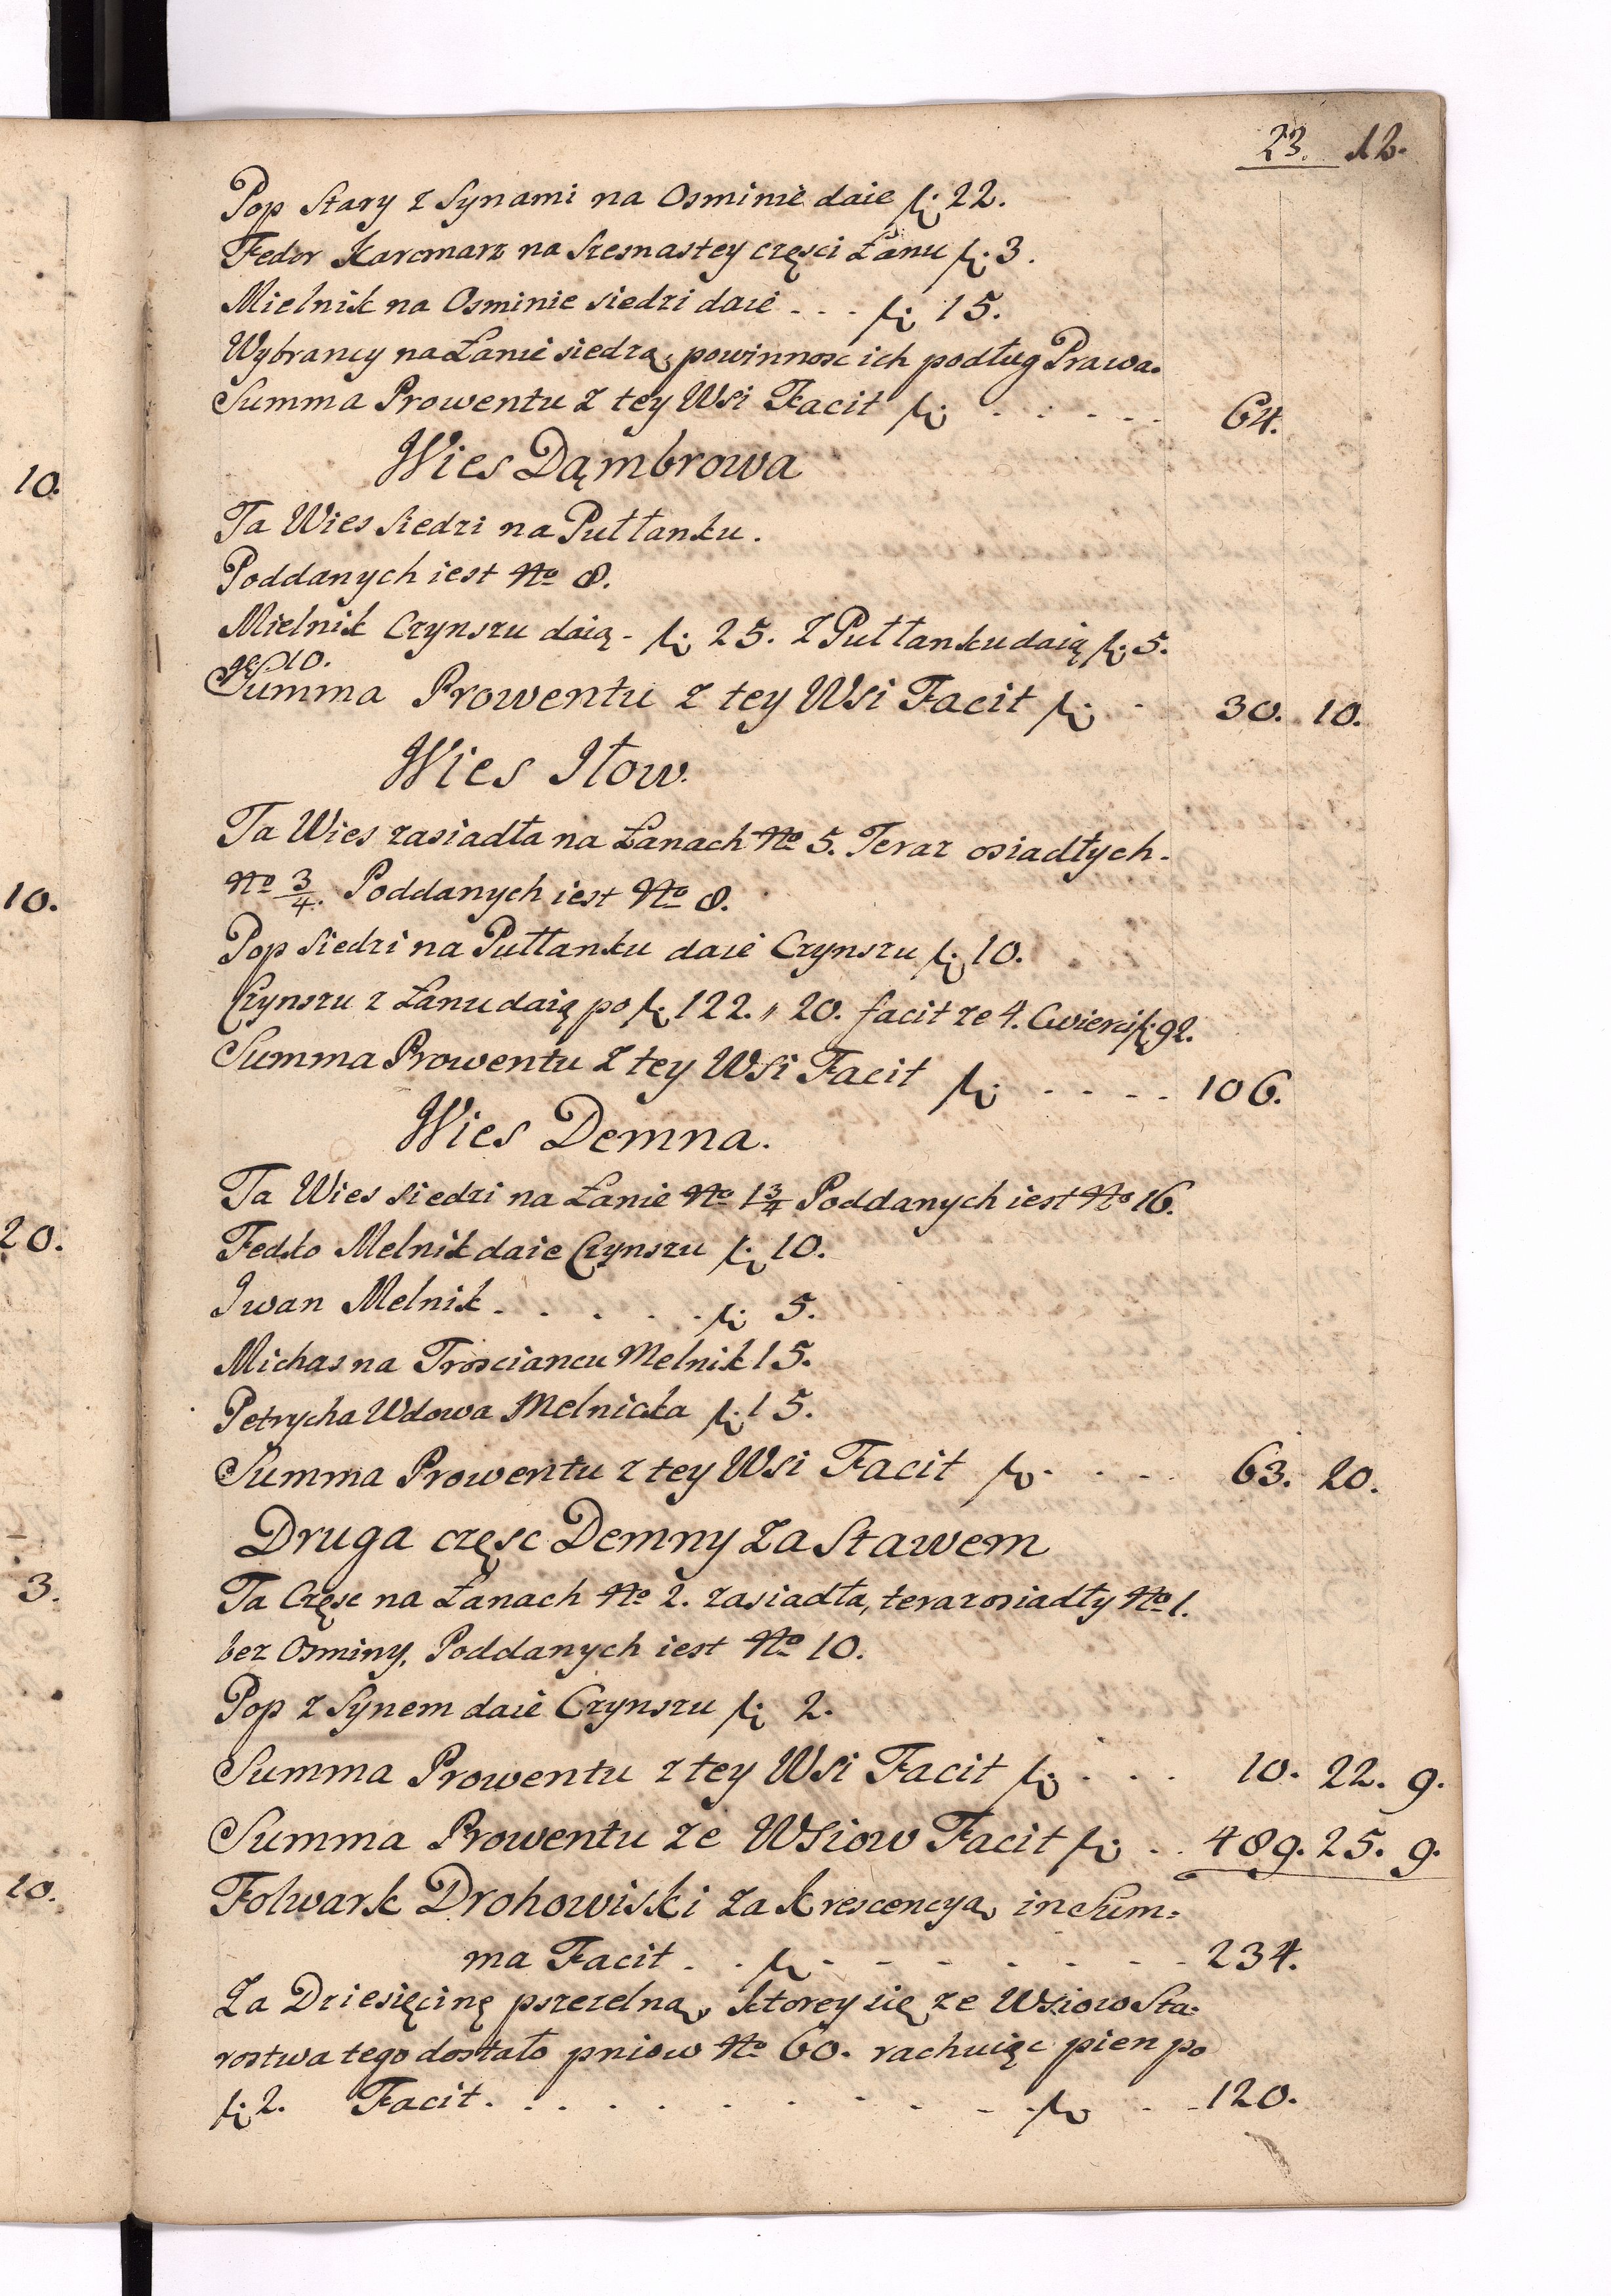 23. 12.
Pop Stary z Synami na Osminie daie fl: 22.
Fedor Karcmarz na Szesnastey części Łanu fl: 3.
Mielnik na Osminie siedzi daie . . . fl: 15.
Wybrancy na Łanie siedzą, powinnosc ich podług Prawa.
Summa Prowentu z tey Wsi Facit fl: . . . . . 64.
Wies Dąmbrowa
Ta Wies siedzi na Pułłanku.
Poddanych iest No 8.
Mielnik Czynszu daią - fl: 25. Z Pułłanku daią fl: 5.
gr. 10.
Summa Prowentu z tey Wsi Facit fl: - 30. 10.
Wies Iłow.
Ta Wies zasiadła na Łanach No 5. Teraz osiadłych.
No 3/4. Poddanych iest No 8.
Pop siedzi na Pułłanku daie Czynszu fl: 10.
Czynszu z Łanu daią po fl: 122. " 20. facit ze 4. Cwierci fl: 92.
Summa Prowentu z tey Wsi Facit fl: . . . . 106.
Wies Demna.
Ta Wies siedzi na Łanie No 1 3/4 Poddanych iest No 16.
Fedko Melnik daie Czynszu fl: 10.
Iwan Melnik . . . . . fl: 5.
Michas na Trosciancu Melnik 15.
Petrycha Wdowa Melnicka fl: 15.
Summa Prowentu z tey Wsi Facit fl: . . . 63. 20.
Druga częsc Demny za Stawem
Ta Częsc na Łanach No 2. zasiadła, teraz osiadły No 1.
bez Osminy, Poddanych iest No 10.
Pop z Synem daie Czynszu fl: 2.
Summa Prowentu z tey Wsi Facit fl: . . . 10. 22. 9.
Summa Prowentu ze Wsiow Facit fl: . . 489. 25. 9.
Folwark Drohowiski za Krescencyą in Sum:
ma Facit . . fl: - - - - - - - 234.
Za Dziesięcinę pszczelną, ktorey się ze Wsiow Sta:
rostwa tego dostało pniow No 60. rachuiąc pien po
fl: 2. Facit . . . . . . . . . . fl: . . 120.
10.
10.
20.
3.
10.